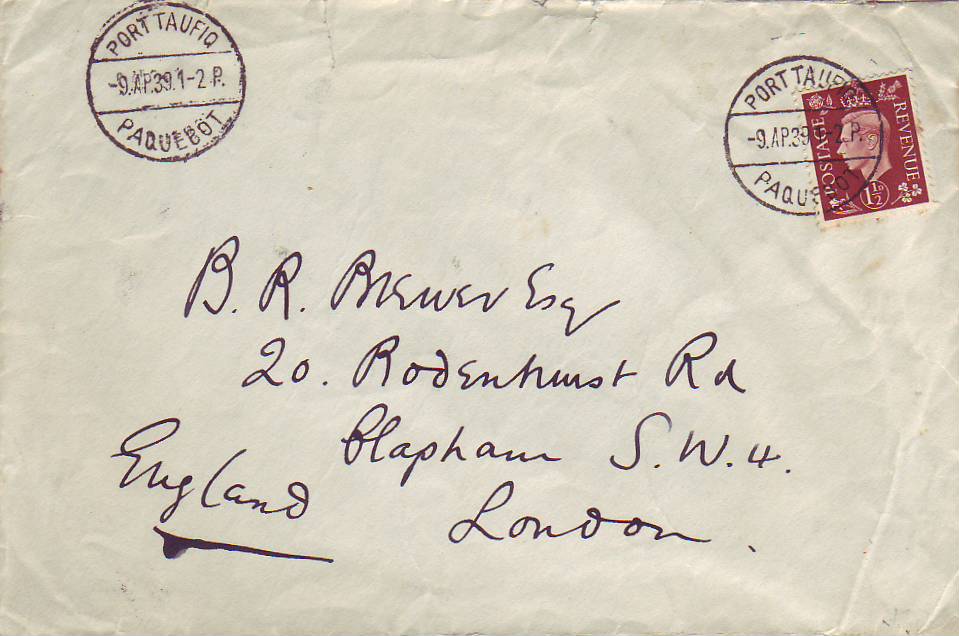 PORT TAUFIQ
-9.AP.39.1-2 P.
PAQUEBOT
PORT TAUFIQ
-9.AP.39.1-2 P.
PAQUEBOT
POSTAGE
REVENUE
1½D
B. R. Brewer Esq
20. Rodenhurst Rd
Clapham S.W.4.
London.
England